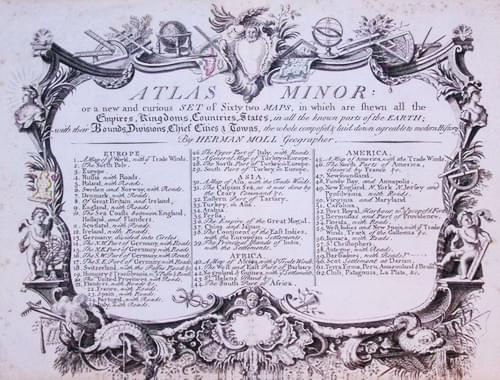 ATLAS MINOR:
or a new and curious SET of Sixty two MAPS, in which are shewn all the
Empires, Kingdoms, Countries, States, in all the known parts of the EARTH;
with their Bounds, Divisions, Chief Cities & Towns, the whole composed & laid down agreable to modern History.
By HERMAN MOLL Geographer.
EUROPE.
1. A Map of ye World, with ye Trade Winds.
2. The North Pole.
3. Europe.
4. Russia with Roads.
5. Poland, with Roads.
6. Sweden and Norway, with Roads.
7. Denmark, with Roads.
8. Of Great Britain and Ireland.
9. England, with Roads.
10. The Sea Coasts between England,
Holland, and Flanders.
11. Scotland, with Roads.
12. Ireland, with Roads.
13. Germany divided into Circles
14. The N.W. Part of Germany, with Roads.
15. The N.E. Part of Germany with Roads.
16. The S.W. Part of Germany with Roads.
17. The S.E. Part of Germany with Roads.
18. Switzerland, with the
19. Hungary & Transilvania, with
20. United Provinces, with Roads.
21. Flanders, with Roads
22. France, with Roads.
23. Spain, with Roads.
24. Portugal, with Roads.
25. Italy, with Roads.
26. The Upper Part of Italy, with Roads.
27. A General Map of Turkey in Europe.
28. The North Part of Turkey in Europe.
29. South Part of Turkey in Europe.
ASIA.
30. A Map of Asia, with the Trade Winds.
31. The Caspian Sea, as it was done by
the Czars Command &c.
32. Eastern Part of Tartary.
33. Turkey, in Asia.
34. Arabia.
35. Persia.
36. The Empire of the Great Mogul.
37. China and Japan.
38. The Continent of the East Indies,
with the European Settlements.
39. The Principal Islands of India,
with the Settlements.
AFRICA.
40. A Map of Africa, with ye Trade Winds.
41. The West and East Part of Barbary
42. Negroland & Guinea, with ye Settlements.
43. St. Helena
44. The South Part of Africa.
AMERICA.
45. A Map of America, with the Trade Winds.
46. The North Parts of America
claimed by France &c.
47. Newfoundland.
48. Hudsons Bay, and Annapolis.
49. New England, N. York N. Jersey and
Pensilvania, with Roads.
50. Virginia and Maryland
51. Carolina.
52. Port Royal,
53. Bermudas and Part of Providence.
54. Florida, with Roads.
55. West Indies, and New Spain, with ye Trade
Winds, Track of the Galleons &c.
56. Jamaica, with Roads.
57. St. Christophers
58. Antego, with Roads.
59. Barbadoes, with Roads
60. Scots Settlement at Darien.
61. Terra Firma, Peru, Amazoneland & Brasil
62. Chili, Patagonia, La Plata, &c.